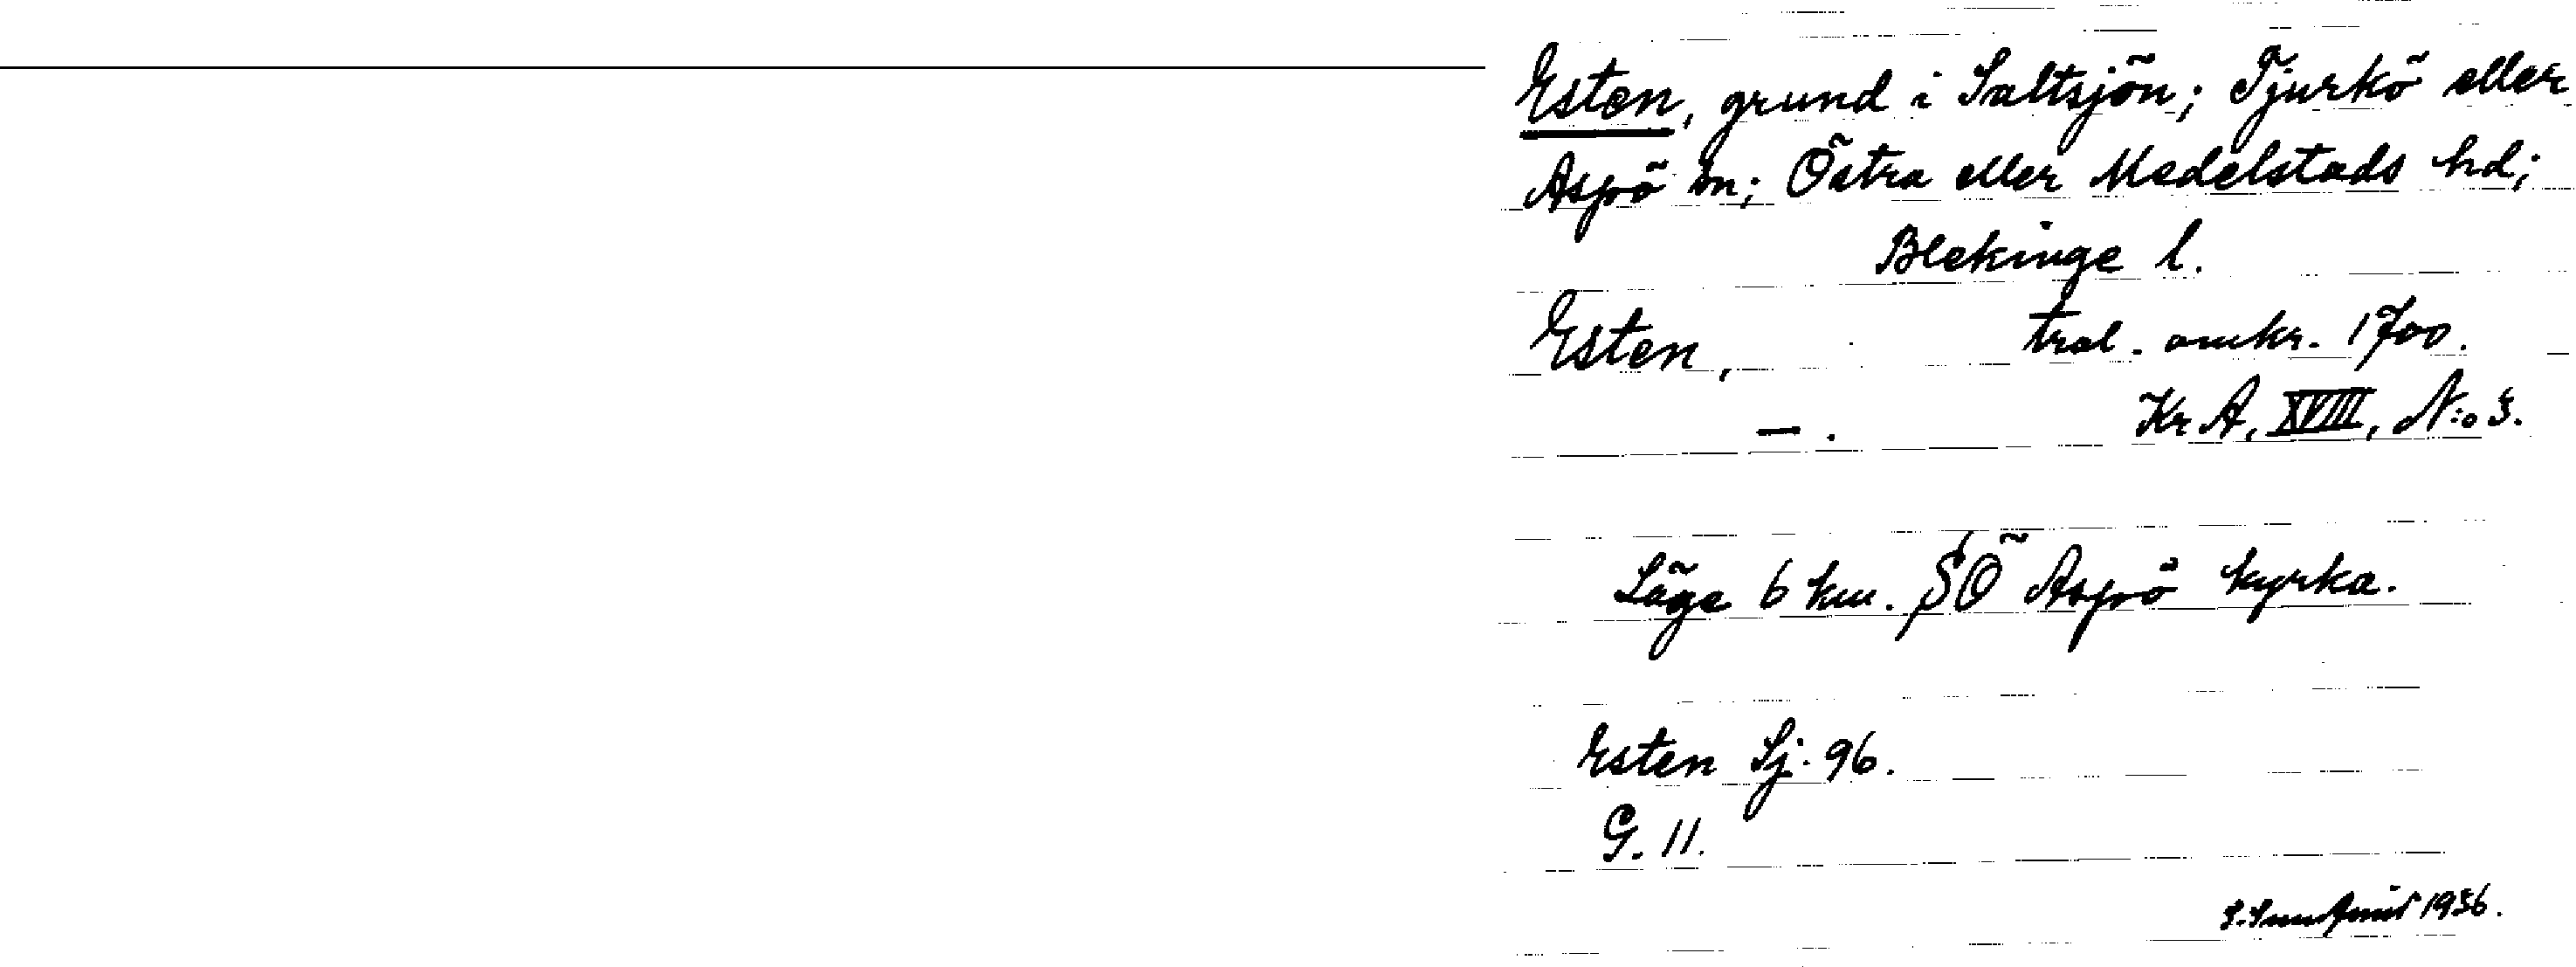 Esten, grund i Saltsjön; Tjurkö eller
Aspö sn; Östra eller Medelstads hd;
Blekinge l.
Esten, trol. omkr. 1700.
—. Kr A, XVIII, N:o 3.
Läge 6 km. SÖ Aspö kyrka.
Esten Sj. 96.
G. 11.
1936.